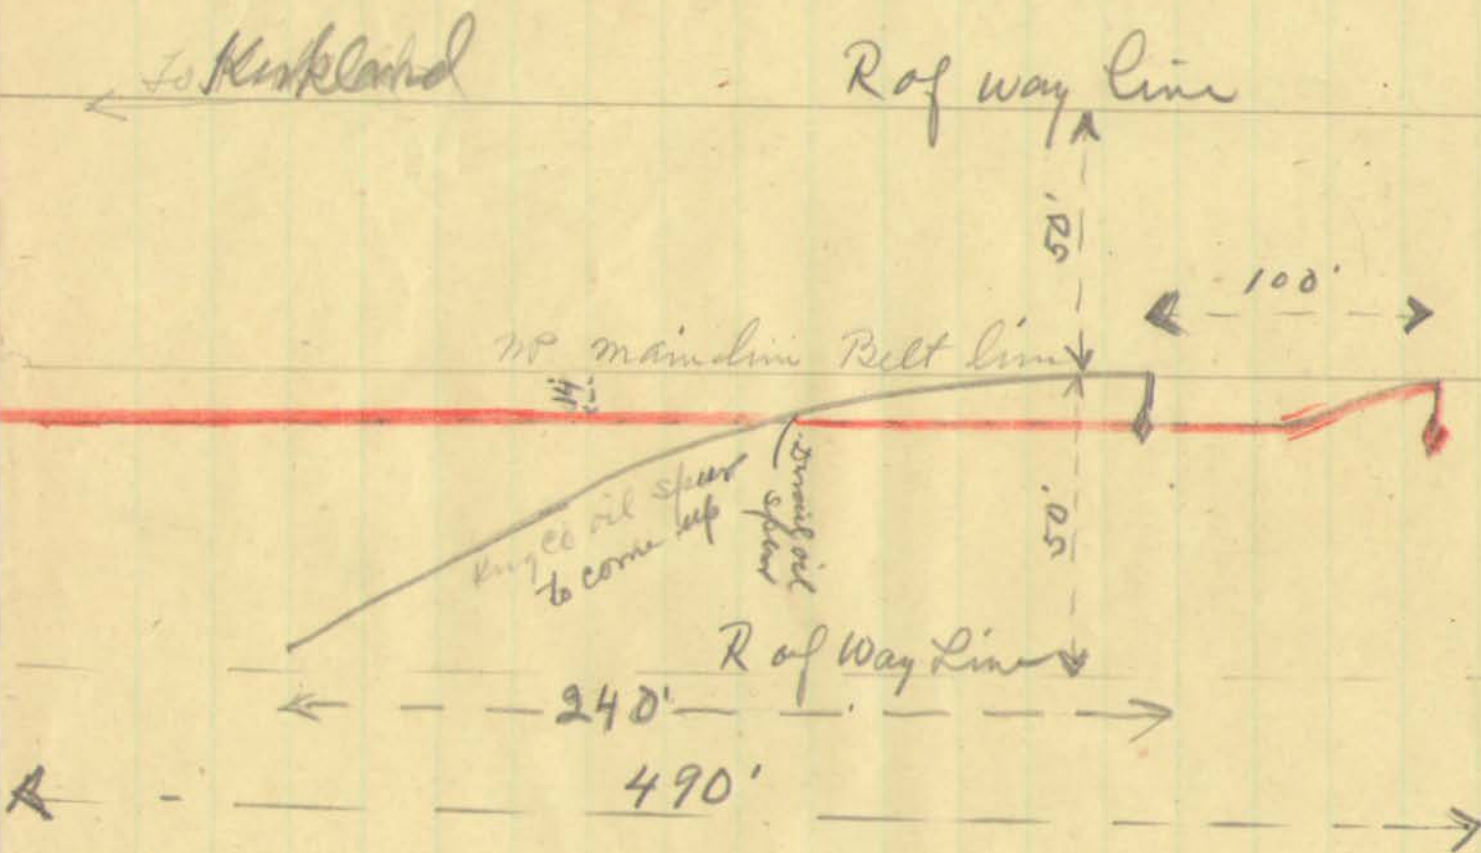 to Kirkland
R of way line
50'
100'
NP main line Belt line
14'
King Co oil spur
to come up
oil
spur
50'
R of Way Line
240'
490'